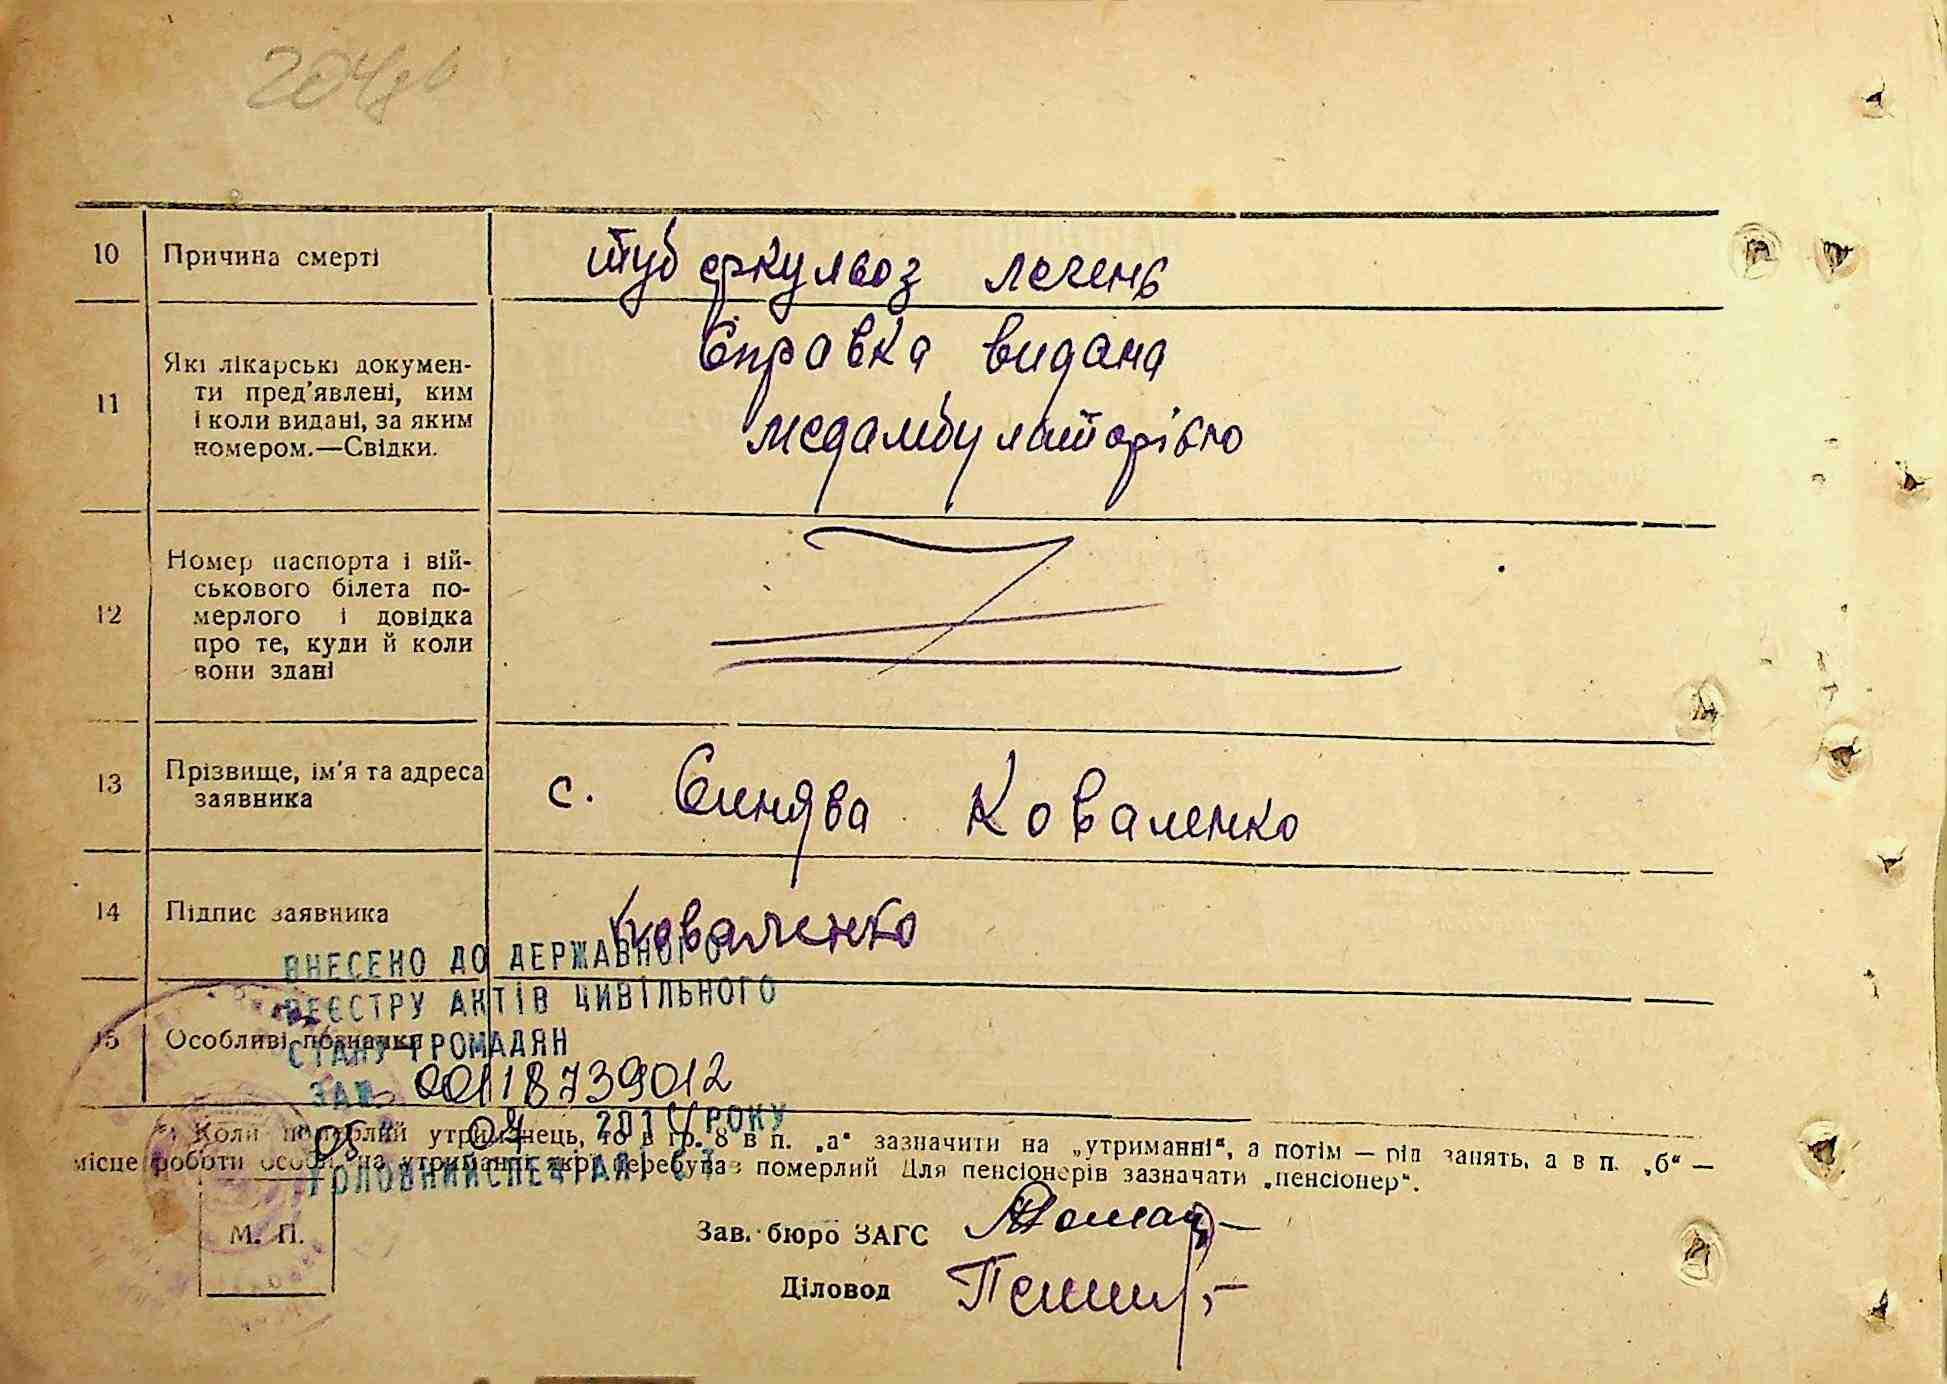 10 Причина смерті туберкульоз легень
11 Які лікарські докумен- Справка видана
ти пред'явлені, ким медамбулаторією
і коли видані, за яким
номером.—Свідки.
12 Номер паспорта і вій-
ськового білета по-
мерлого і довідка
про те, куди й коли
вони здані
13 Прізвище, ім'я та адреса с. Синява Коваленко
заявника
14 Підпис заявника Коваленко
ВНЕСЕНО ДО ДЕРЖАВНОГО
РЕЄСТРУ АКТІВ ЦИВІЛЬНОГО
15 Особливі позначки
СТАНУ ГРОМАДЯН
ЗА № 00118739012
"05" 04 РОКУ
Коли померлий утриманець, то в гр. 8 в п. „а“ зазначити на „утриманні“, а потім — рід занять, а в п. „б“ —
місце роботи особи, на утриманні якої перебував померлий Для пенсіонерів зазначати „пенсіонер“.
ГОЛОВНИЙ СПЕЦІАЛІСТ
М. П.
Зав. бюро ЗАГС
Діловод